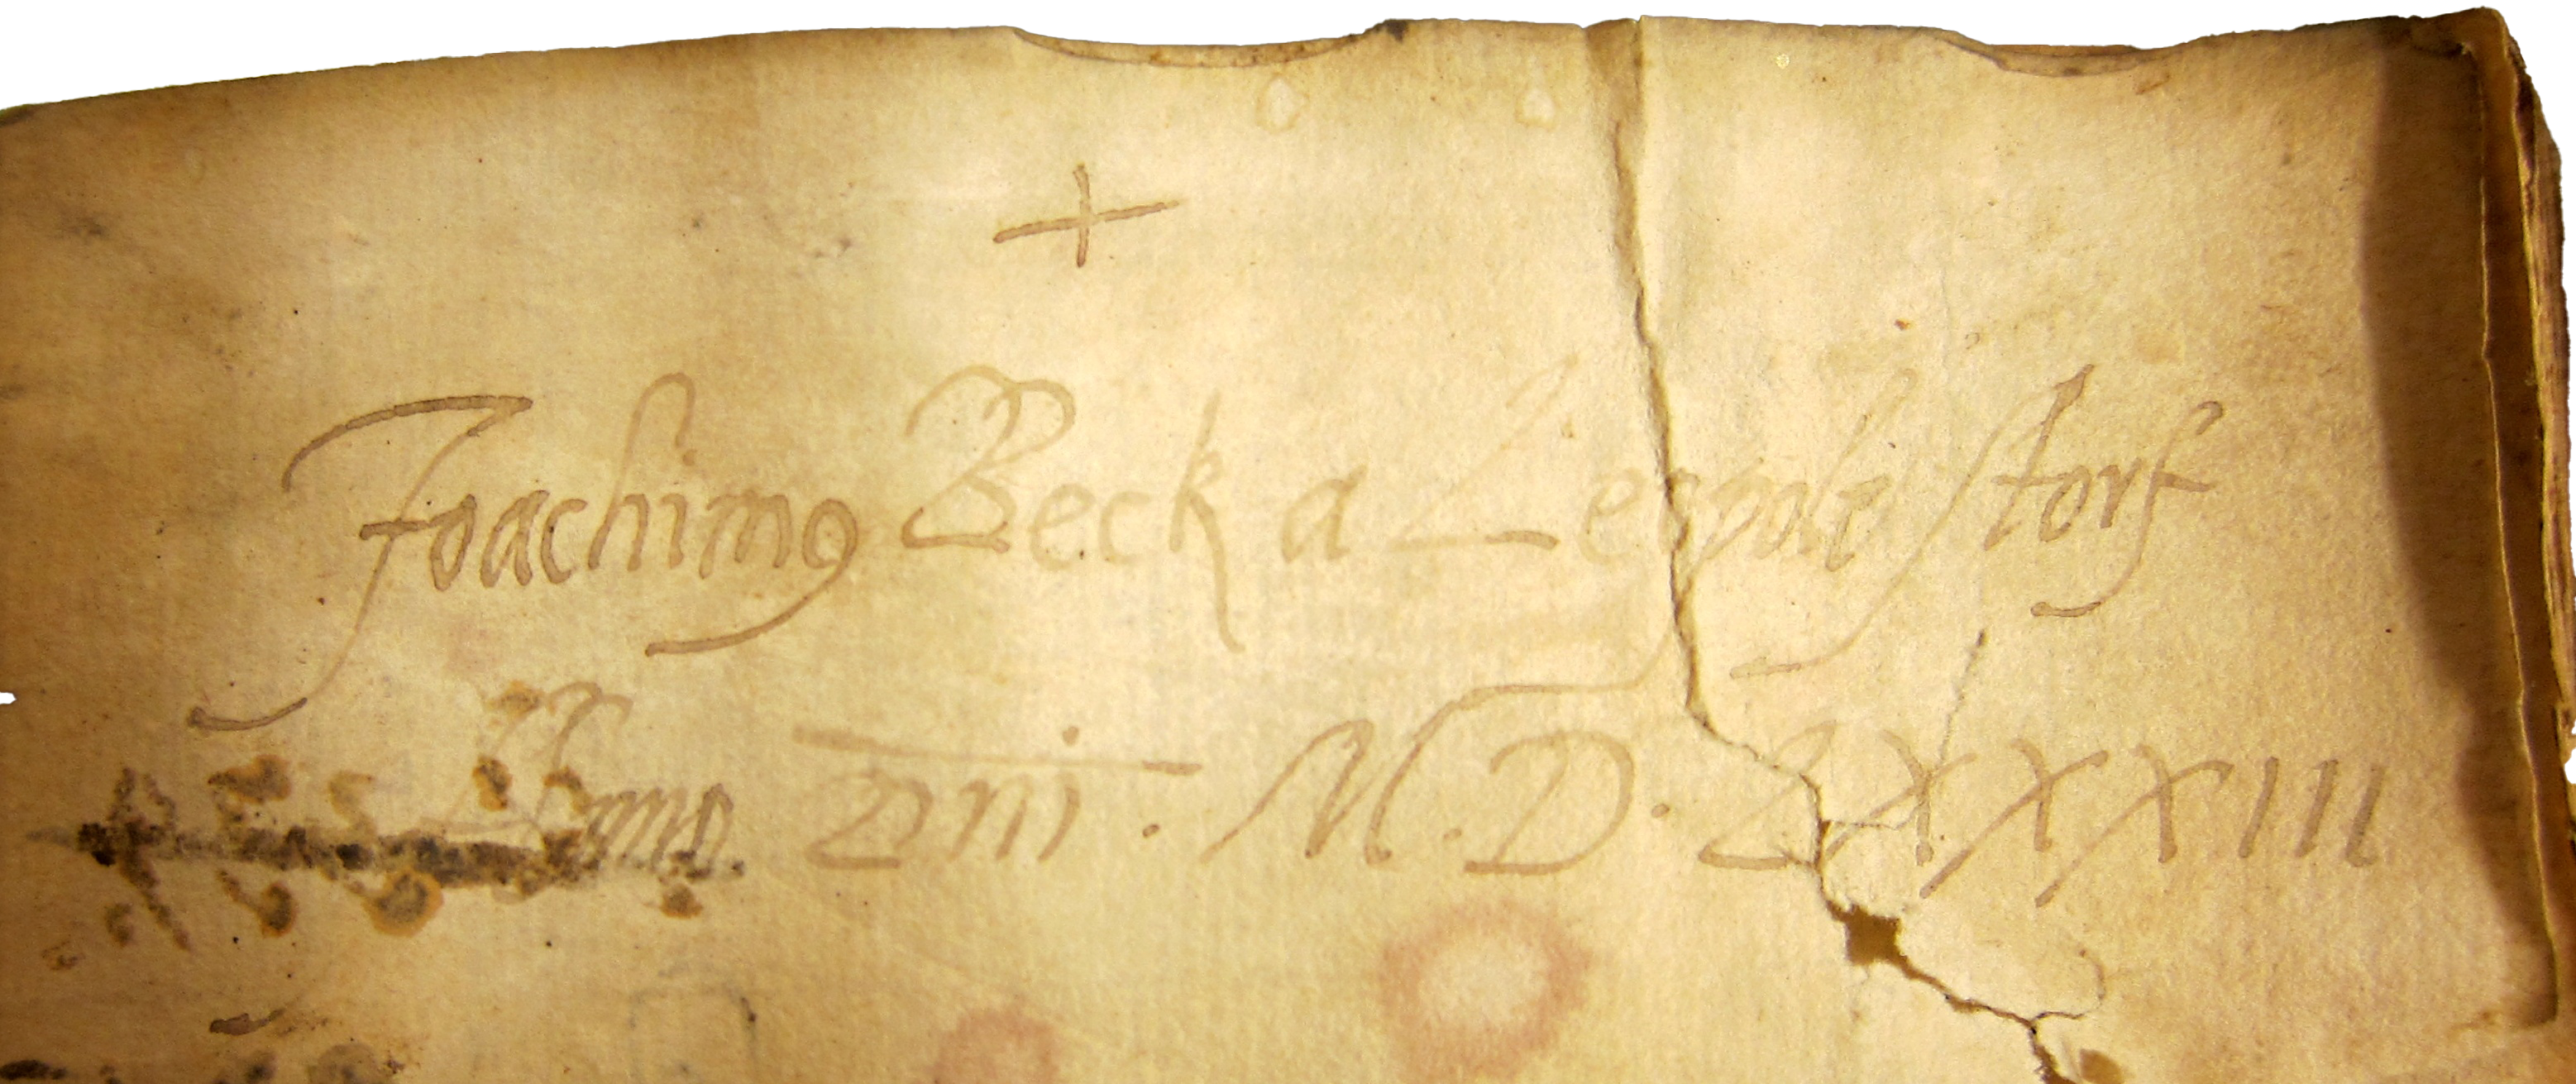 +
Joachimꝰ Beck a Leopolestorf
Anno Dn̄i · M · D · LXXXIII